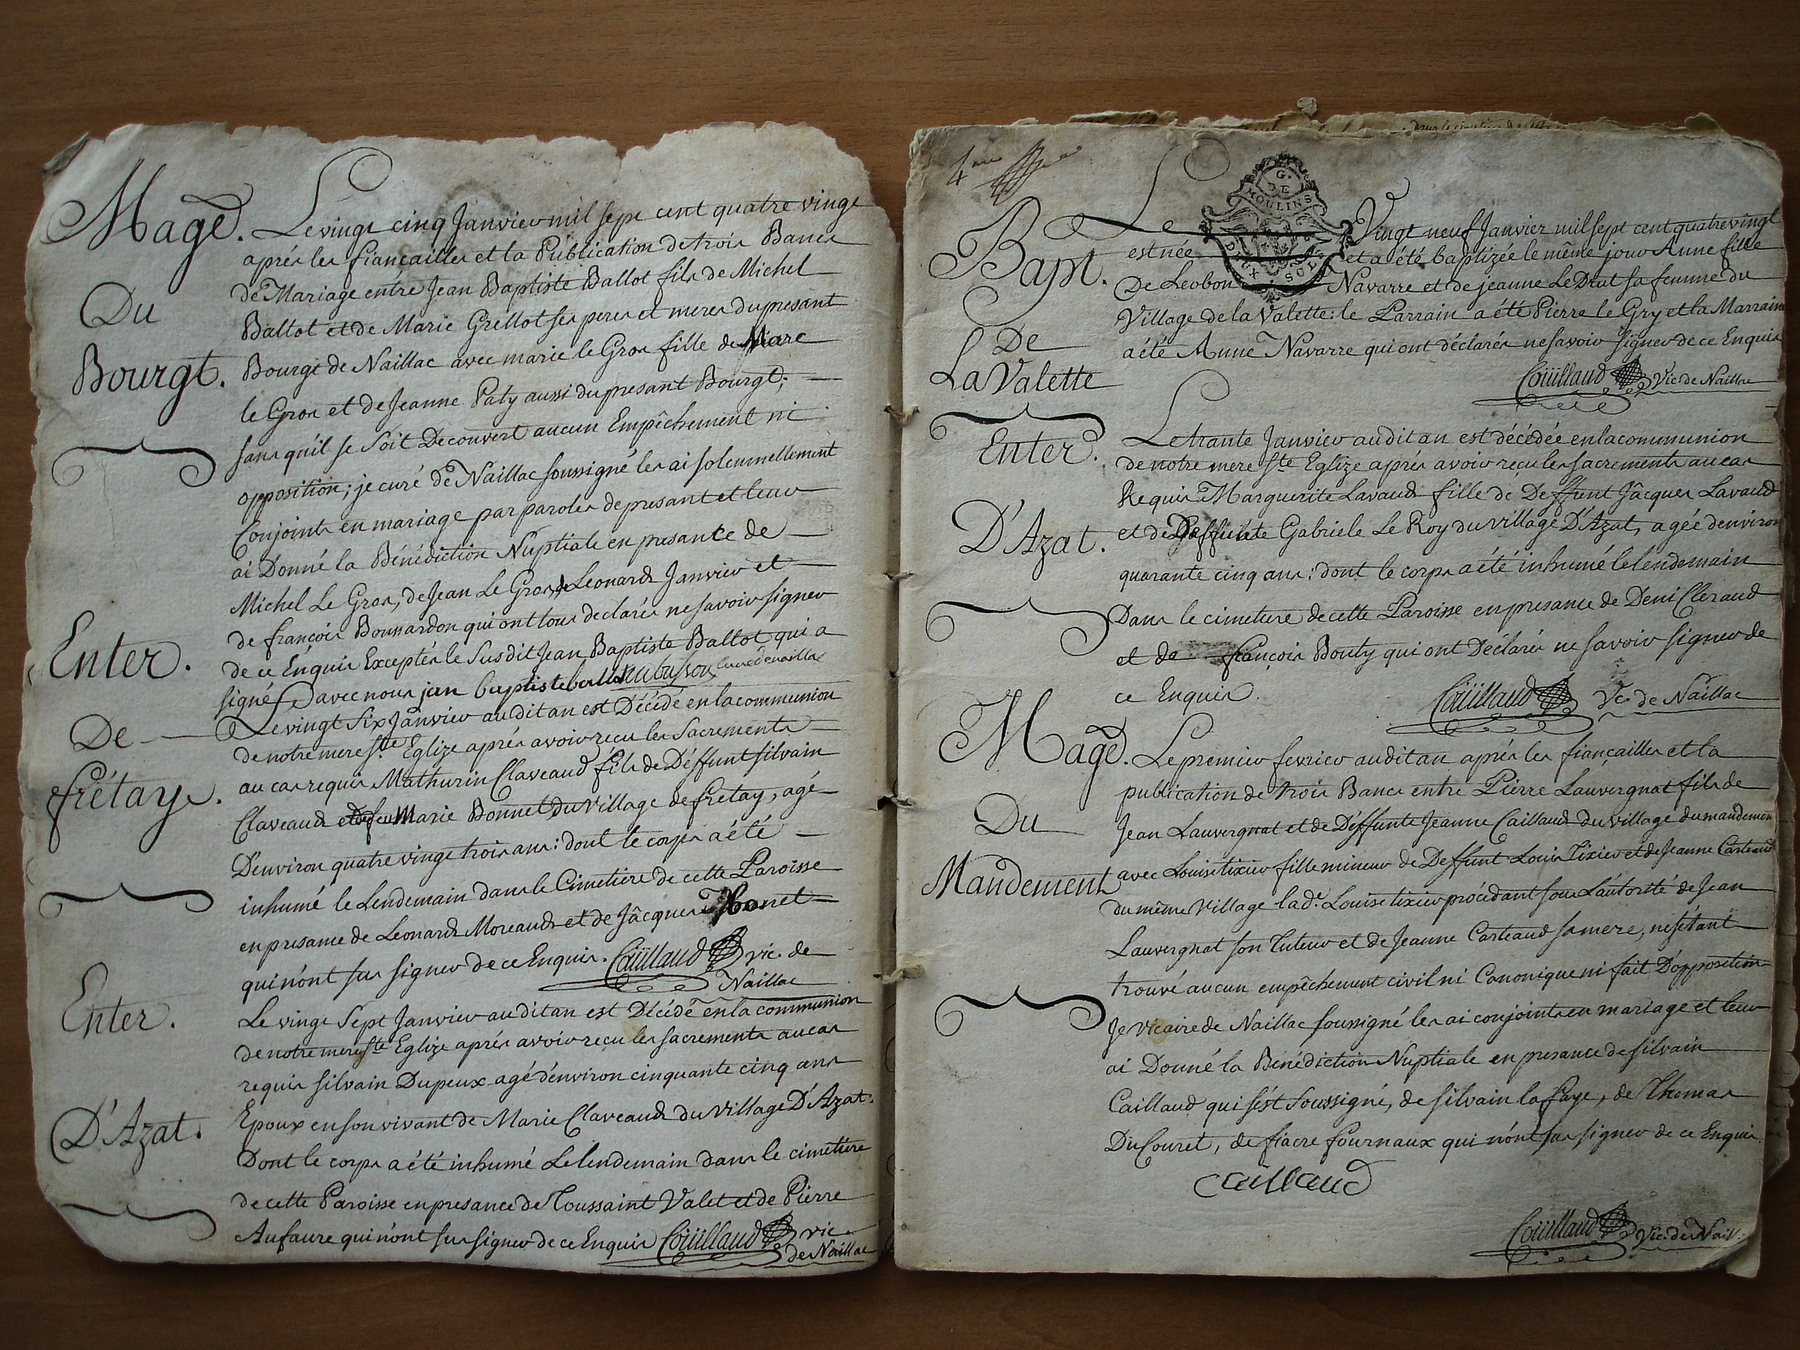 Mage. Le vingt cinq Janvier mil sept cent quatre vingt
après les fiançailles et la Publication de trois Bancs
de Mariage entre Jean Baptiste Ballot fils de Michel
Du
Ballot et de Marie Grellot ses peres et meres du presant
Bourgt. Bourgt de Naillac avec marie le Gros fille de Marc
le Gros et de Jeanne Paty aussi du presant Bourgt;
sans qu'il se soit Découvert aucun Empêchement ni
opposition; je curé de Naillac soussigné les ai solemnellement
Conjoints en mariage par paroles de presant et leur
ai Donné la Bénédiction Nuptiale en presance de
Michel Le Gros, de Jean Le Gros, de Leonard Janvier et
de françois Bonnardon qui ont tous declarés ne savoir signer
Enter. de ce Enquis Exceptés le Susdit Jean Baptiste Ballot qui a
signé avec nous jan baptiste ballot aubusson curé de naillac
De Le vingt Six Janvier audit an est Décédé en la communion
de notre mere Ste Eglize après avoir reçu les Sacrements
frétay. au cas requis Mathurin Claveaud fils de Deffunt silvain
Claveaud et de feu Marie Bonnet Du village de frétay, agé
D'environ quatre vingt trois ans: dont le corps a été
inhumé le Lendemain dans le Cimetiere de cette Paroisse
en presance de Leonard Moreaud et de Jâcques Bonnet
qui n'ont sus signer de ce Enquis. Coüillaud vic. de
Naillac
Enter. Le vingt Sept Janvier audit an est Décédé en la communion
de notre mere Ste Eglize après avoir reçu les sacrements au cas
requis silvain Dupeux agé d'environ cinquante cinq ans
D'Azat. Epoux en son vivant de Marie Claveaud du village D'Azat.
Dont le corps a été inhumé Le lendemain dans le cimetiere
de cette Paroisse en presance de Toussaint Valet et de Pierre
Aufaure qui n'ont sus signer de ce Enquis Coüillaud vic
de Naillac
4me
G. DE MOULINS
DEUX SOLS
Bapt. Le Vingt neuf Janvier mil sept cent quatre vingt
est née et a été baptizée le même jour Anne fille
De Leobon Navarre et de jeanne Le Drut sa femme du
De Village de la Valette: le Parrain a été Pierre le Gry et la Marraine
La Valette a été Anne Navarre qui ont déclarés ne savoir signer de ce Enquis
Coüillaud Vic. de Naillac
Enter. Le trante Janvier audit an est décédée en la communion
de notre mere Ste Eglize après avoir reçu les sacrements au cas
Requis Marguerite Lavaud fille de Deffunt Jâcques Lavaud
D'Azat. et de Deffunte Gabriele Le Roy du village D'Azat, agée d'environ
quarante cinq ans: dont le corps a été inhumé le lendemain
Dans le cimetiere de cette Paroisse en presance de Deni Cleraud
et de françois Bouty qui ont Déclarés ne savoir signer de
ce Enquis. Coüillaud Vic. de Naillac
Mage. Le premier fevrier audit an après les fiançailles et la
publication de trois Bancs entre Pierre Lauvergnat fils de
Du Jean Lauvergnat et de Deffunte Jeanne Caillaud du village du mandement
Mandement avec Louise tixier fille mineur de Deffunt Louis Tixier et de Jeanne Carteaud
du même Village lad. Louise tixier procédant sous L'autorité de Jean
Lauvergnat son Tuteur et de Jeanne Carteaud sa mere, ne s'étant
trouvé aucun empêchement civil ni Canonique ni fait D'opposition
Je vicaire de Naillac soussigné les ai conjoints en mariage et leur
ai Donné la Bénédiction Nuptiale en presance de silvain
Caillaud qui s'est Soussigné, de silvain la faye, de Thomas
Du Couret, de fiacre fournaux qui n'ont sus signer de ce Enquis
Caillaud
Coüillaud Vic. de Nail.